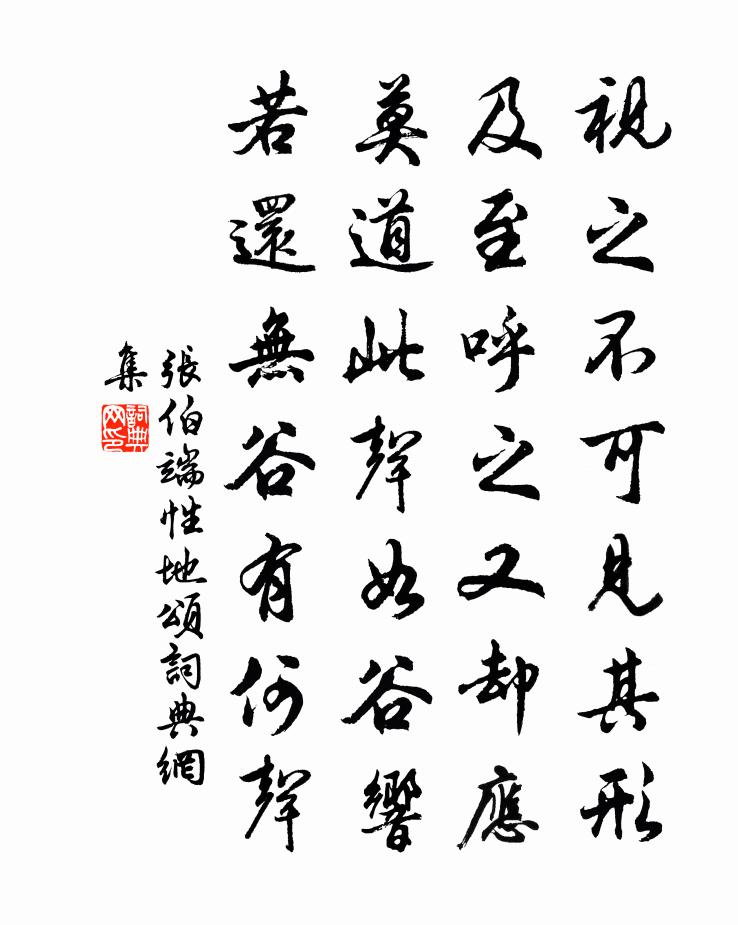 視之不可見其形
及至呼之又却應
莫道此聲如谷響
若還無谷有何聲
張伯端性地頌詞典網
集
詞典网印